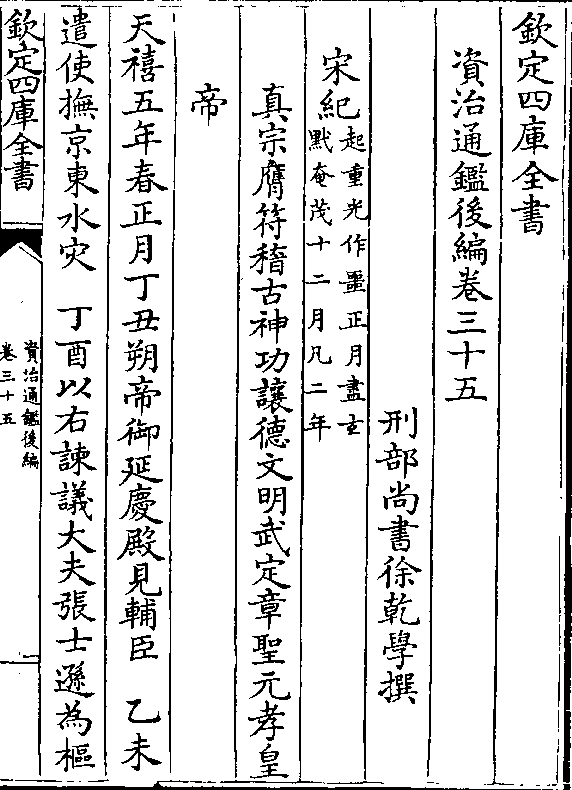 欽定四庫全書
資治通鑑後編卷三十五
刑部尚書徐乾學撰
宋紀起重光作噩正月盡玄
默奄茂十二月凡二年
真宗膺符稽古神功讓德文明武定章聖元孝皇
帝
天禧五年春正月丁丑朔帝御延慶殿見輔臣　乙未
遣使撫京東水灾　丁酉以右諫議大夫張士遜為樞
欽定四庫全書
資治通鑑後編
卷三十五
一